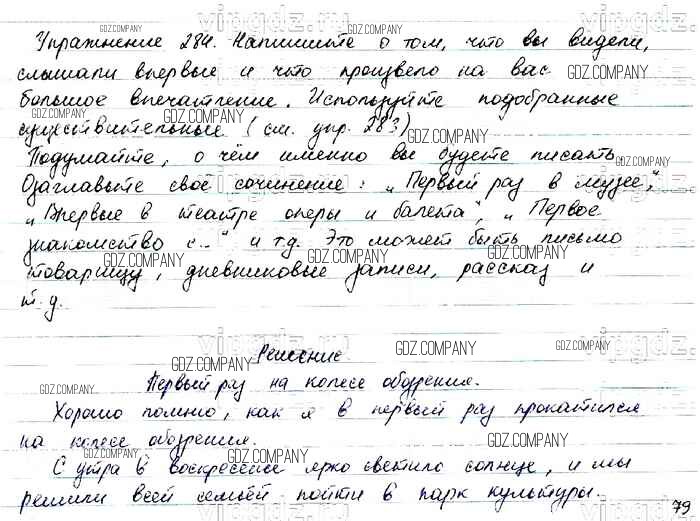 Упражнение 284. Напишите о том, что вы видели,
слышали впервые и что произвело на вас
большое впечатление. Используйте подобранные
существительные (см. упр. 283)
Подумайте, о чём именно вы будете писать
Озаглавьте своё сочинение: „Первый раз в музее",
„Впервые в театре оперы и балета", „Первое
знакомство с..." и т.д. Это может быть письмо
товарищу, дневниковые записи, рассказ и
т.д.
Решение
Первый раз на колесе обозрения.
Хорошо помню, как я в первый раз прокатился
на колесе обозрения.
С утра в воскресенье ярко светило солнце, и мы
решили всей семьёй пойти в парк культуры.
79
GDZ.COMPANY
vipgdz.ru